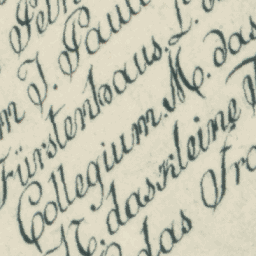 m J. Paul
Fürstenhaus. L.
Collegium. M. das
N. das kleine
das Fra